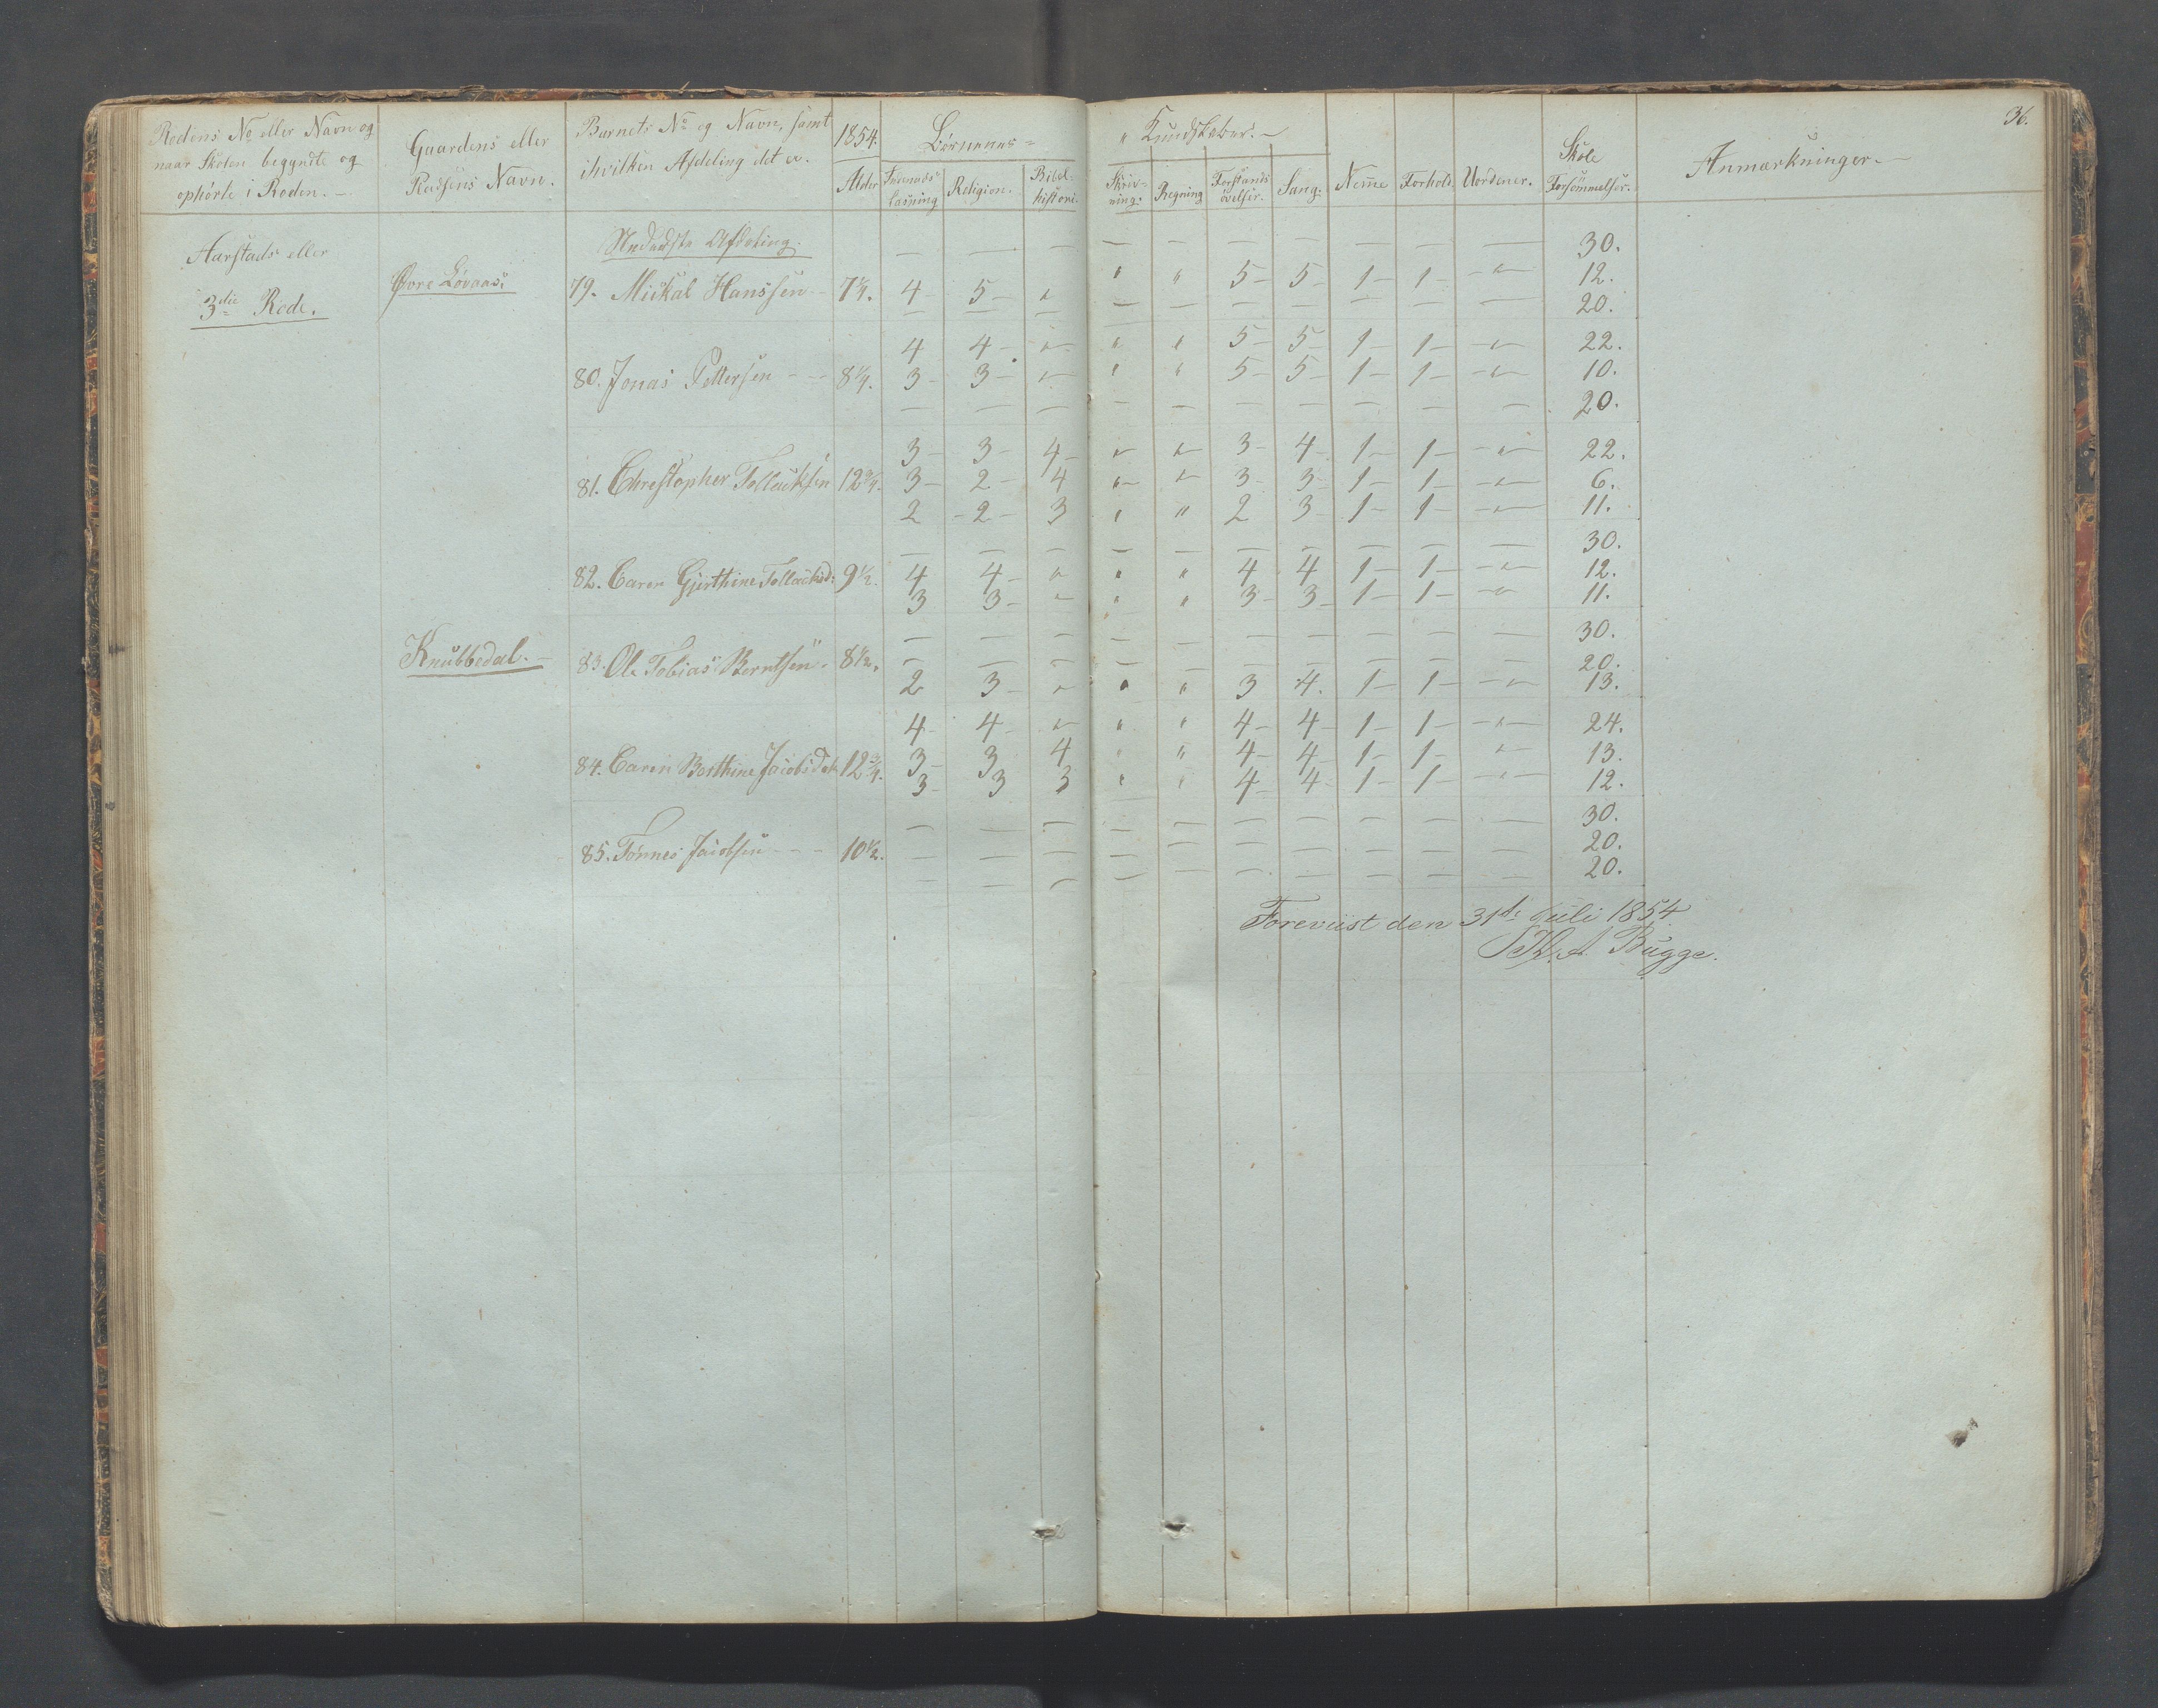 36.
Rodens No eller Navn og naar Skolen begyndte og ophørte i Roden. —
Gaardens eller Pladsens Navn.
Barnets No og Navn, samt i hvilken Afdeling det er.
1854. Alder
Børnenes = " Kundskaber. —
Religion. Bibel-historie. Skriv-ning. Regning Forstands øvelser. Sang. Nemme Forhold. Uordener. Skole Forsømmelser. Anmærkninger. —
Aarstads eller
3die Rode.
Nederste Afdeling.
— — — — — — — — — — 30.
Øvre Løvaas.
79. Mickal Hanssen 7 1/4. 4 5 " " " 5 5 1 1 " 12.
— — — — — — — — — — 20.
4 4 " " " 5 5 1 1 " 22.
80. Jonas Pettersen 8 1/4. 3 3 " " " 5 5 1 1 " 10.
— — — — — — — — — — 20.
3 3 4 " " 3 4 1 1 " 22.
81. Christopher Tollacksen 12 3/4. 3 2 4 " " 3 3 1 1 " 6.
2 2 3 " " 2 3 1 1 " 11.
— — — — — — — — — — 30.
82. Caren Gjerthine Tollacksd: 9 1/2. 4 4 " " " 4 4 1 1 " 12.
3 3 " " " 3 3 1 1 " 11.
— — — — — — — — — — 30.
Knubbedal. —
83. Ole Tobias Berntsen. 8 1/2. — — — — — — — — — — 20.
2 3 " " " 3 4. 1 1 " 13.
4 4 " " " 4 4 1 1 " 24.
84. Caren Berthine Jacobsdat 12 3/4. 3 3 4 " " 4 4 1 1 " 13.
3 3 3 " " 4 4 1 1 " 12.
— — — — — — — — — — 30.
85. Tønnes Jacobsen 10 1/2. — — — — — — — — — — 20.
— — — — — — — — — — 20.
Foreviist den 31te Juli 1854
Bugge.